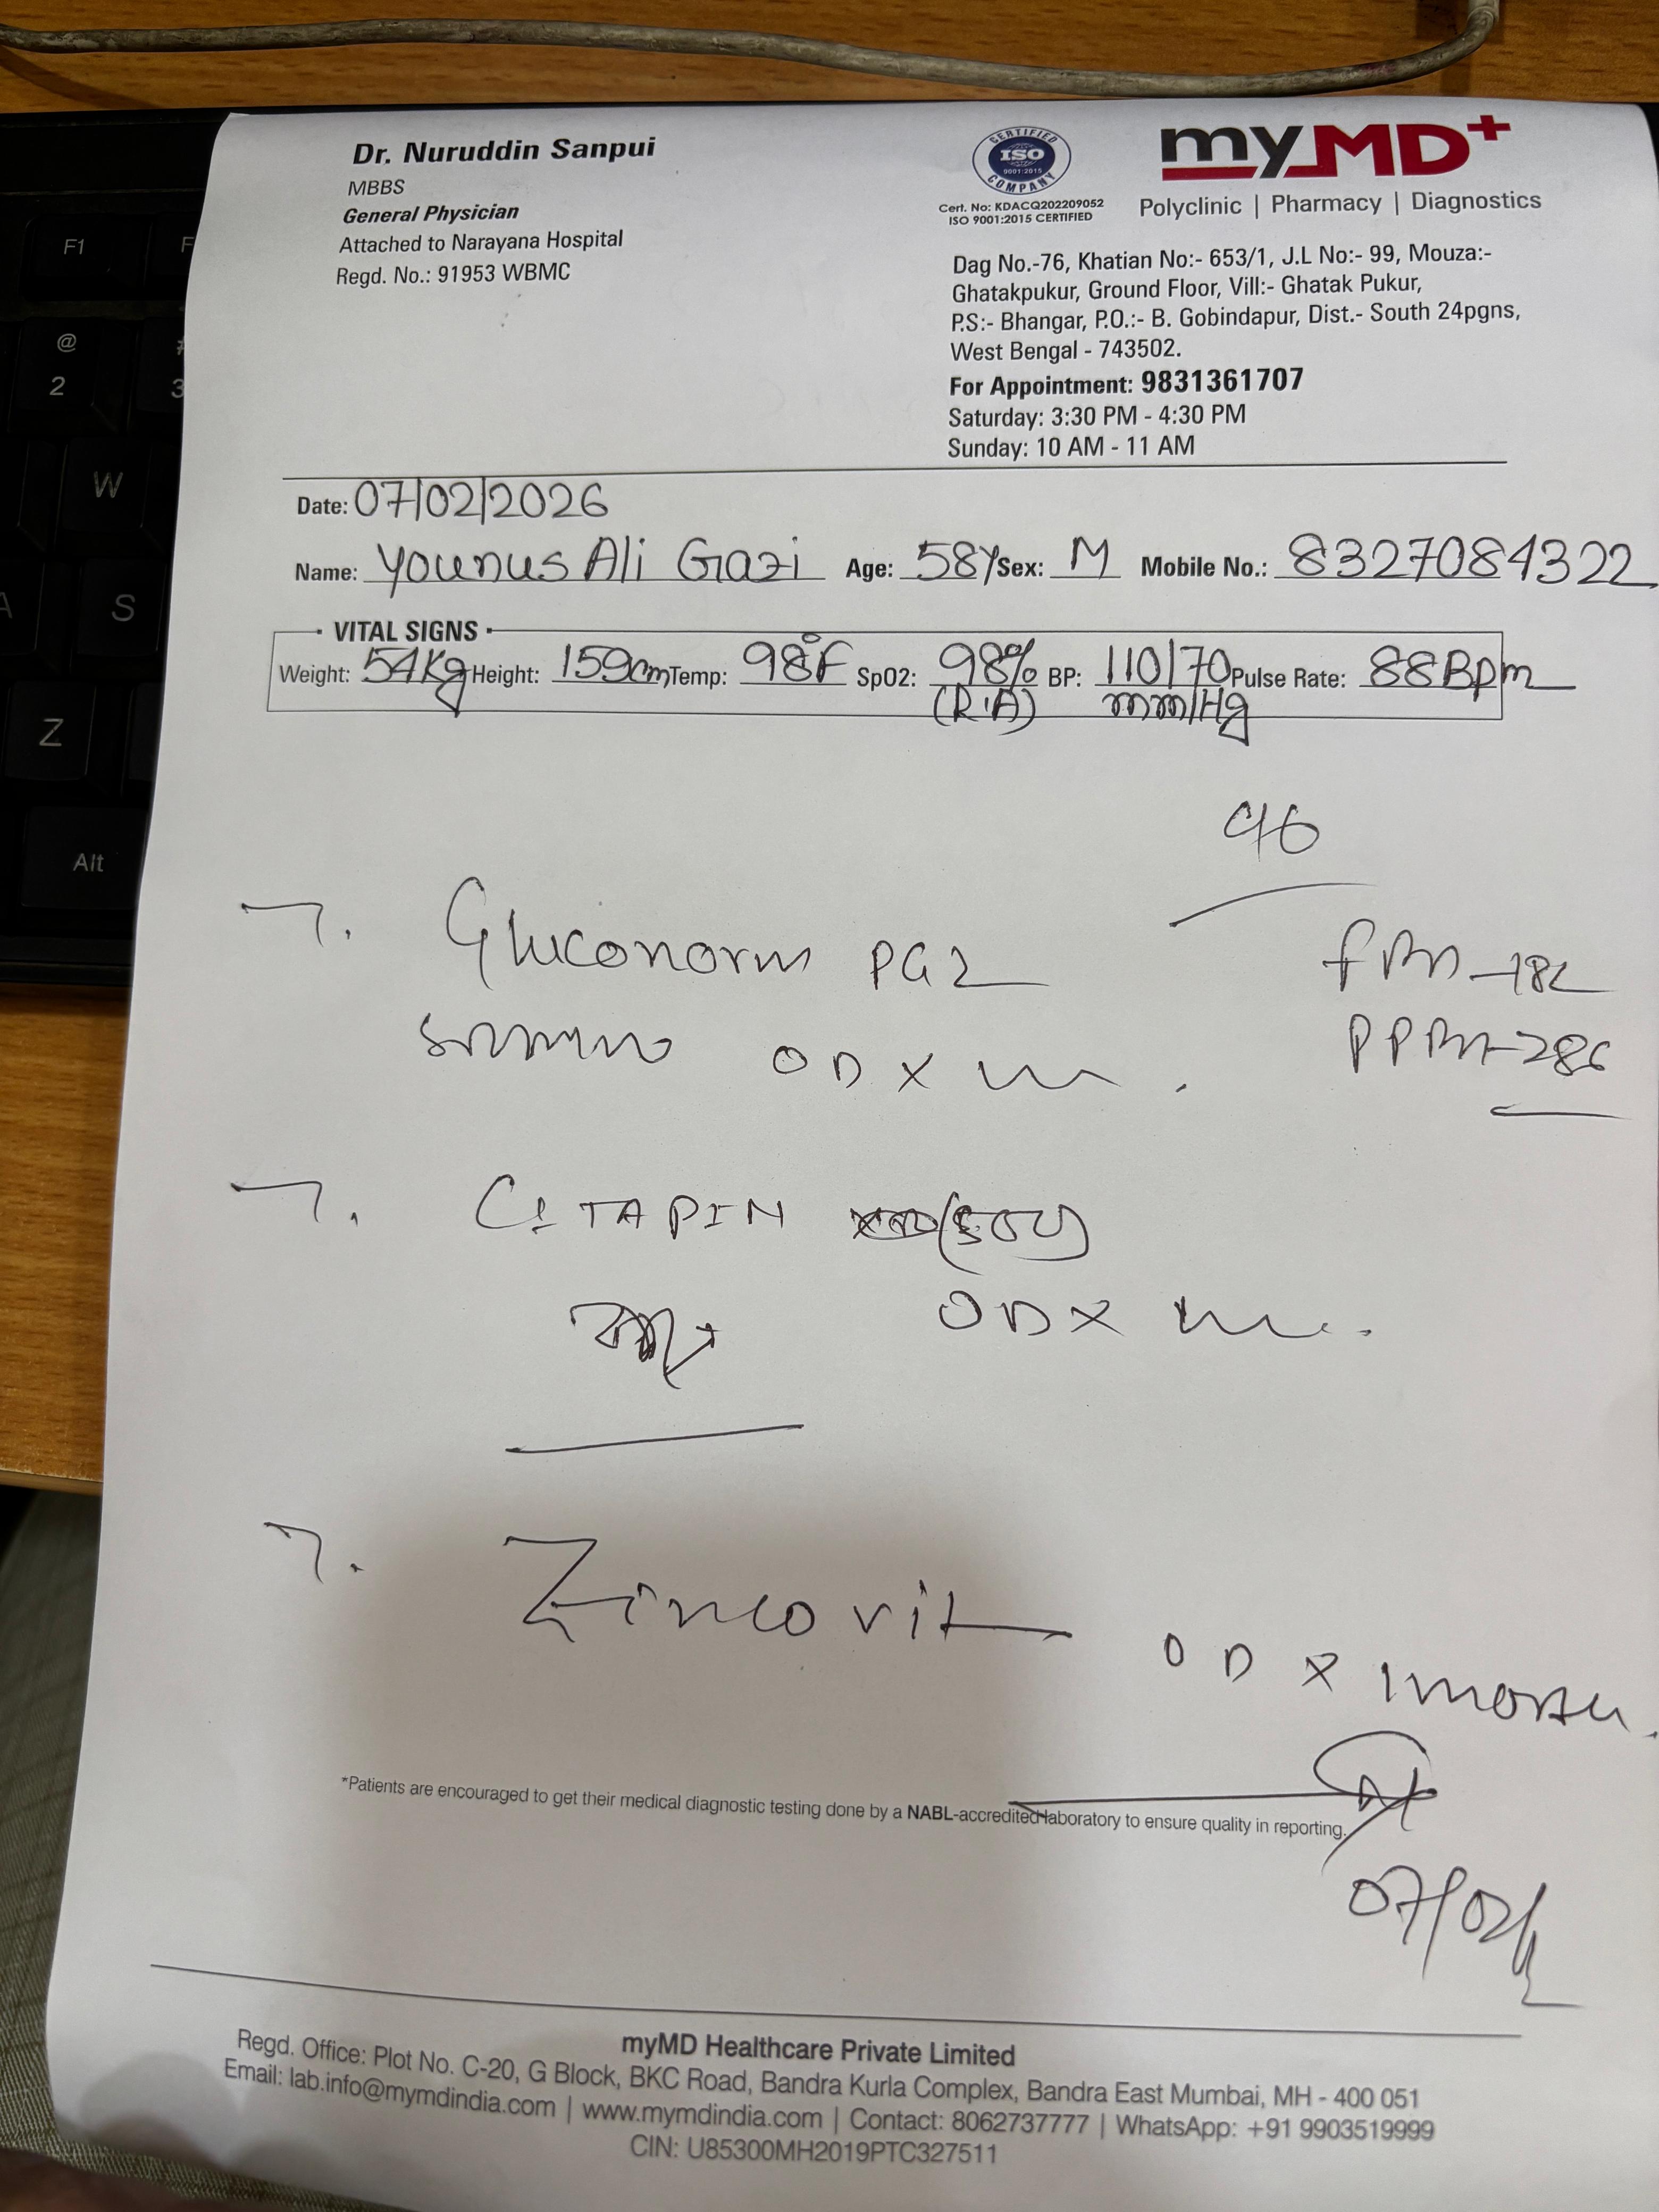 Dr. Nuruddin Sanpui
MBBS
General Physician
Attached to Narayana Hospital
Regd. No.: 91953 WBMC
CERTIFIED
ISO
9001:2015
COMPANY
Cert. No: KDACQ202209052
ISO 9001:2015 CERTIFIED
myMD+
Polyclinic | Pharmacy | Diagnostics
Dag No.-76, Khatian No:- 653/1, J.L No:- 99, Mouza:-
Ghatakpukur, Ground Floor, Vill:- Ghatak Pukur,
P.S:- Bhangar, P.O.:- B. Gobindapur, Dist.- South 24pgns,
West Bengal - 743502.
For Appointment: 9831361707
Saturday: 3:30 PM - 4:30 PM
Sunday: 10 AM - 11 AM
Date: 07/02/2026
Name: Younus Ali Gazi Age: 58y Sex: M Mobile No.: 8327084322
VITAL SIGNS
Weight: 54Kg Height: 159cm Temp: 98°F SpO2: 98% BP: 110/70 Pulse Rate: 88Bpm
(R.A) mm/Hg
T. Gluconorm PG2
OD X
T. CITAPIN
OD X
T. Zincovit OD X 1 month
*Patients are encouraged to get their medical diagnostic testing done by a NABL-accredited laboratory to ensure quality in reporting.
07/02
myMD Healthcare Private Limited
Regd. Office: Plot No. C-20, G Block, BKC Road, Bandra Kurla Complex, Bandra East Mumbai, MH - 400 051
Email: lab.info@mymdindia.com | www.mymdindia.com | Contact: 8062737777 | WhatsApp: +91 9903519999
CIN: U85300MH2019PTC327511
F1
@
2
3
W
S
Z
Alt